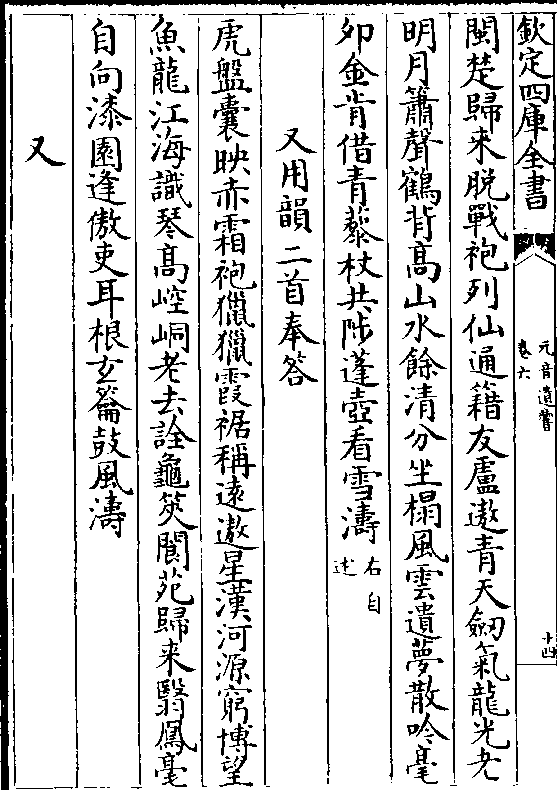 欽定四庫全書
元音遺響
卷六
十四
閩楚歸来脱戰袍列仙通籍友盧遨青天劒氣龍光老
明月簫聲鶴背髙山水餘清分坐榻風雲遺夢散吟毫
夘金肯借青藜杖共陟蓬壺看雪濤右自述
又用韻二首奉答
虎盤囊映赤霜袍獵獵霞裾稱逺遨星漢河源窮博望
魚龍江海識琴髙崆峒老去詮龜筴閬苑歸来翳鳳毫
自向漆園逢傲吏耳根玄籥鼓風濤
又